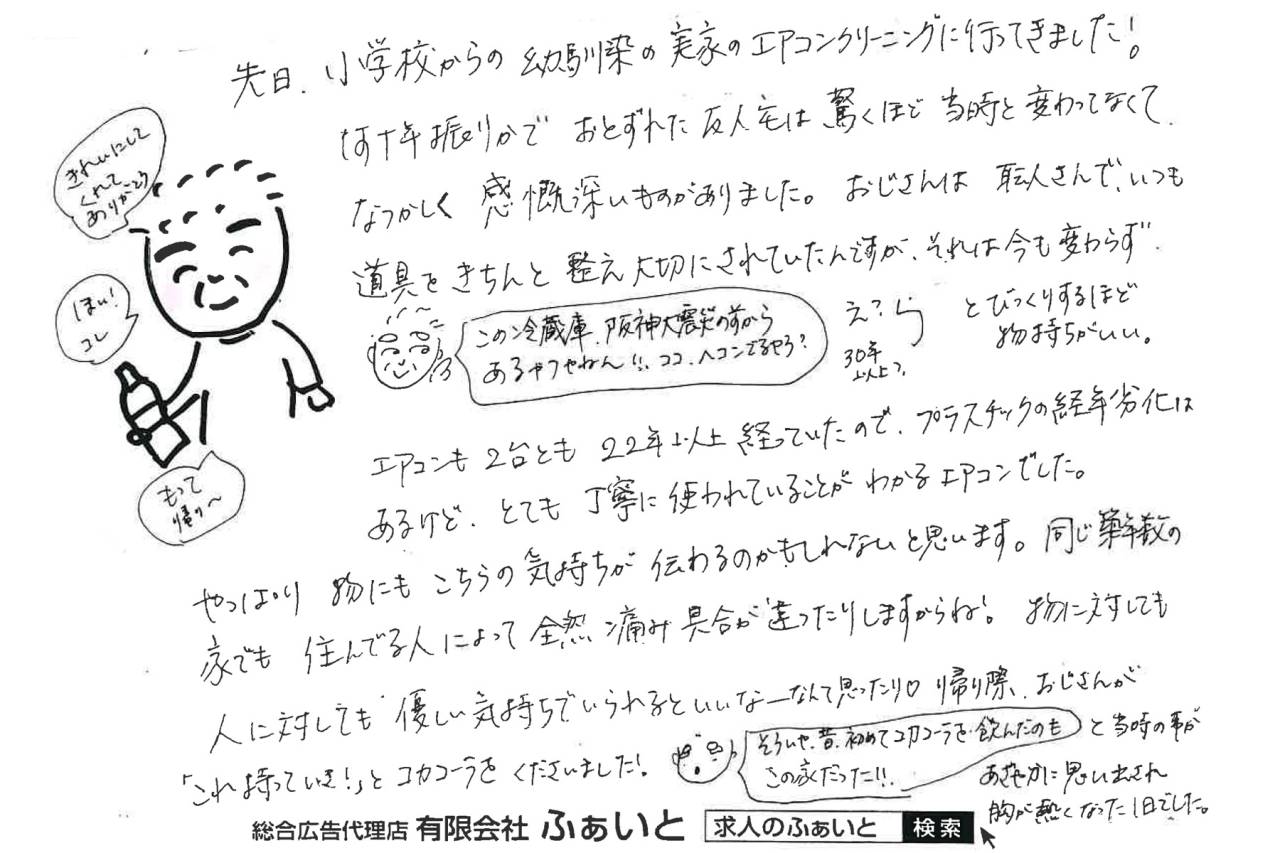 先日、小学校からの幼馴染の実家のエアコンクリーニングに行ってきました!
何十年振りかでおとずれた友人宅は驚くほど当時と変わってなくて、
なつかしく感慨深いものがありました。おじさんは職人さんで、いつも
道具をきちんと整え大切にされていたんですが、それは今も変わらず、
きれいにして
くれて
ありがとう
ほい!
コレ
もって
帰り〜
この冷蔵庫、阪神大震災の前から
あるやつやねん!!ココ、ヘコンでるやろ?
え?
30年
以上?
とびっくりするほど
物持ちがいい。
エアコンも2台とも22年以上経っていたので、プラスチックの経年劣化は
あるけど、とても丁寧に使われていることがわかるエアコンでした。
やっぱり物にもこちらの気持ちが伝わるのかもしれないと思います。同じ築年数の
家でも住んでる人によって全然痛み具合が違ったりしますからね!物に対しても
人に対しても優しい気持ちでいられるといいなーなんて思ったり。帰り際、おじさんが
「これ持っていき!」とコカコーラをくださいました!
そういや、昔、初めてコカコーラを飲んだのも
この家だった!!
と当時の事が
あざやかに思い出され
胸が熱くなった1日でした。
総合広告代理店 有限会社 ふぁいと 求人のふぁいと 検索